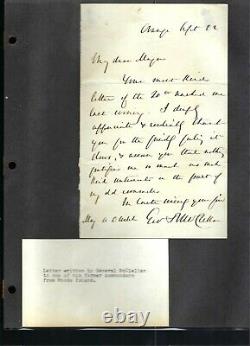 Orange Sept 22
My dear Major
Your most kind
letter of the 20th reached me
last evening. I deeply
appreciate & cordially thank
you for the friendly feeling it
shows, & assure you that nothing
gratifies me so much as such
kind on the part of
my old comrades.
In
May Geo B McClellan
Letter written by General McClellan
to one of his former commanders
from Rhode Island.